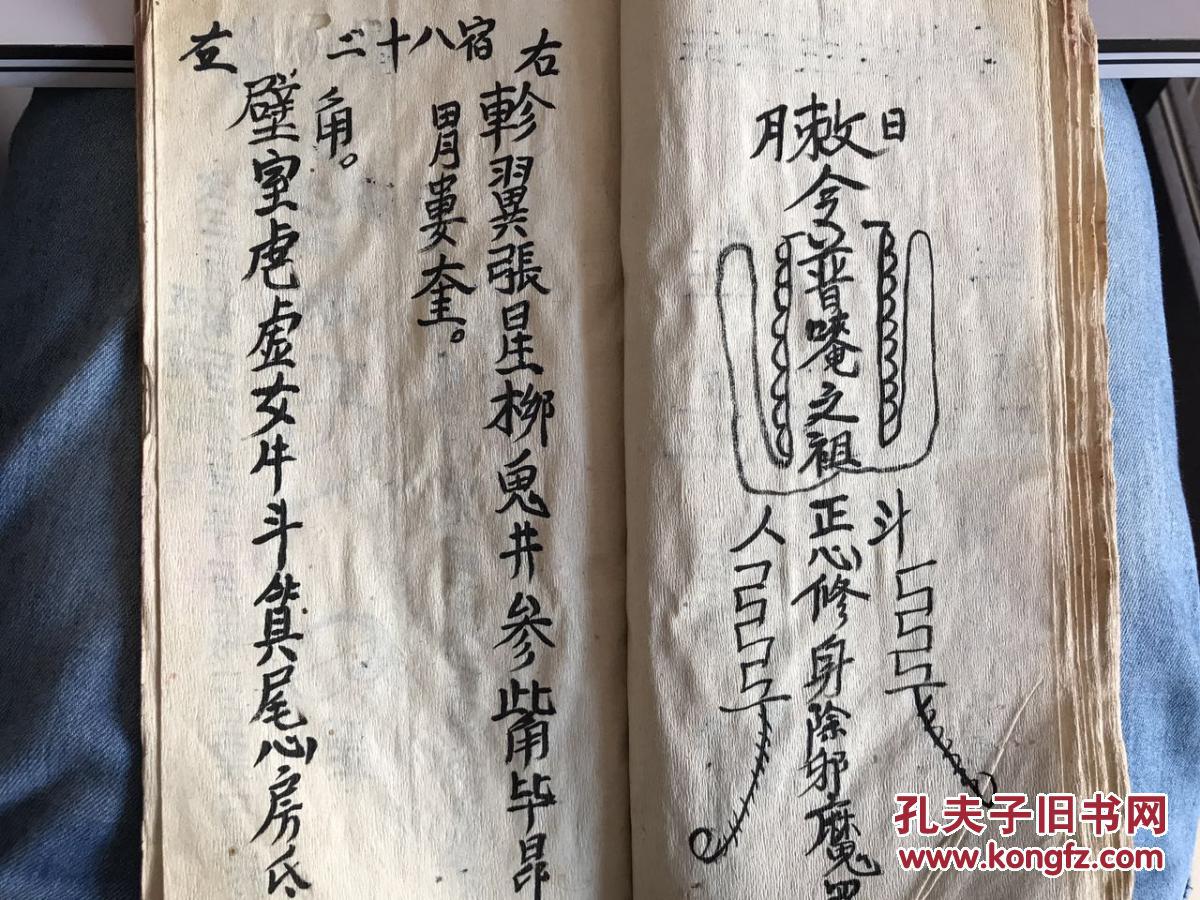 日敕月
令普唵之祖正心修身除邪魔
斗
人
左 二十八宿 右
軫翼張星柳鬼井參觜毕昴
胃婁奎。
壁室危虚女牛斗箕尾心房氐
角。
孔夫子旧书网
www.kongfz.com